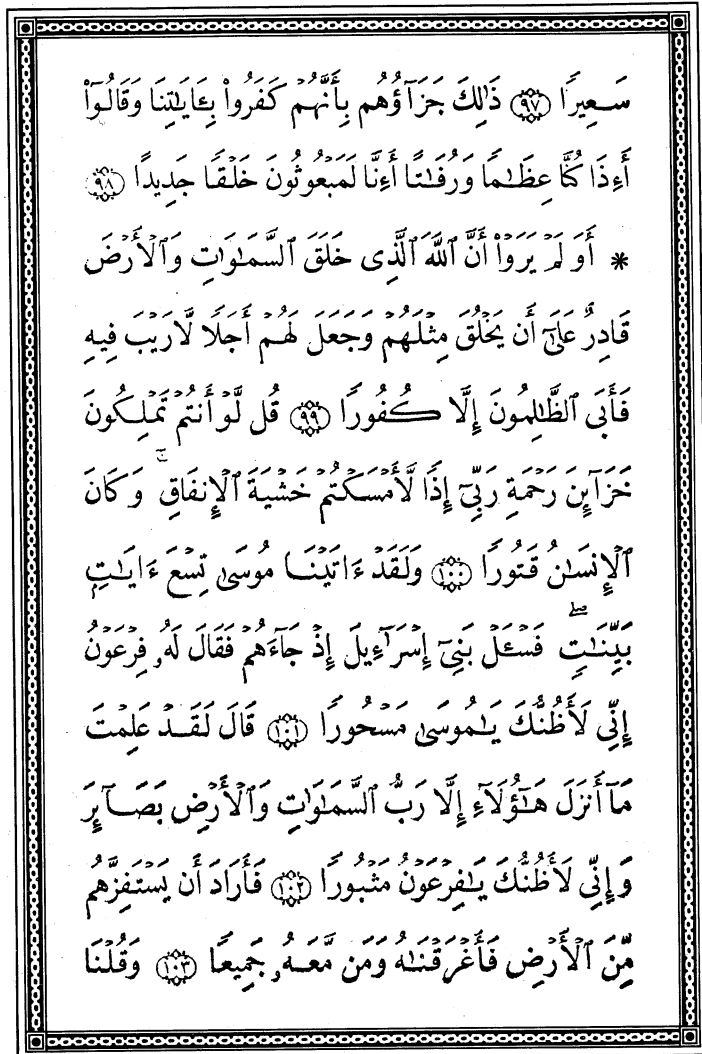 سَعِيرًا ﴿٩٧﴾ ذَٰلِكَ جَزَآؤُهُم بِأَنَّهُمْ كَفَرُوا۟ بِـَٔايَـٰتِنَا وَقَالُوٓا۟
أَءِذَا كُنَّا عِظَـٰمًا وَرُفَـٰتًا أَءِنَّا لَمَبْعُوثُونَ خَلْقًا جَدِيدًا ﴿٩٨﴾
* أَوَلَمْ يَرَوْا۟ أَنَّ ٱللَّهَ ٱلَّذِى خَلَقَ ٱلسَّمَـٰوَٰتِ وَٱلْأَرْضَ
قَادِرٌ عَلَىٰٓ أَن يَخْلُقَ مِثْلَهُمْ وَجَعَلَ لَهُمْ أَجَلًا لَّا رَيْبَ فِيهِ
فَأَبَى ٱلظَّـٰلِمُونَ إِلَّا كُفُورًا ﴿٩٩﴾ قُل لَّوْ أَنتُمْ تَمْلِكُونَ
خَزَآئِنَ رَحْمَةِ رَبِّىٓ إِذًا لَّأَمْسَكْتُمْ خَشْيَةَ ٱلْإِنفَاقِ ۚ وَكَانَ
ٱلْإِنسَـٰنُ قَتُورًا ﴿١٠٠﴾ وَلَقَدْ ءَاتَيْنَا مُوسَىٰ تِسْعَ ءَايَـٰتٍۭ
بَيِّنَـٰتٍ ۖ فَسْـَٔلْ بَنِىٓ إِسْرَٰٓءِيلَ إِذْ جَآءَهُمْ فَقَالَ لَهُۥ فِرْعَوْنُ
إِنِّى لَأَظُنُّكَ يَـٰمُوسَىٰ مَسْحُورًا ﴿١٠١﴾ قَالَ لَقَدْ عَلِمْتَ
مَآ أَنزَلَ هَـٰٓؤُلَآءِ إِلَّا رَبُّ ٱلسَّمَـٰوَٰتِ وَٱلْأَرْضِ بَصَآئِرَ
وَإِنِّى لَأَظُنُّكَ يَـٰفِرْعَوْنُ مَثْبُورًا ﴿١٠٢﴾ فَأَرَادَ أَن يَسْتَفِزَّهُم
مِّنَ ٱلْأَرْضِ فَأَغْرَقْنَـٰهُ وَمَن مَّعَهُۥ جَمِيعًا ﴿١٠٣﴾ وَقُلْنَا